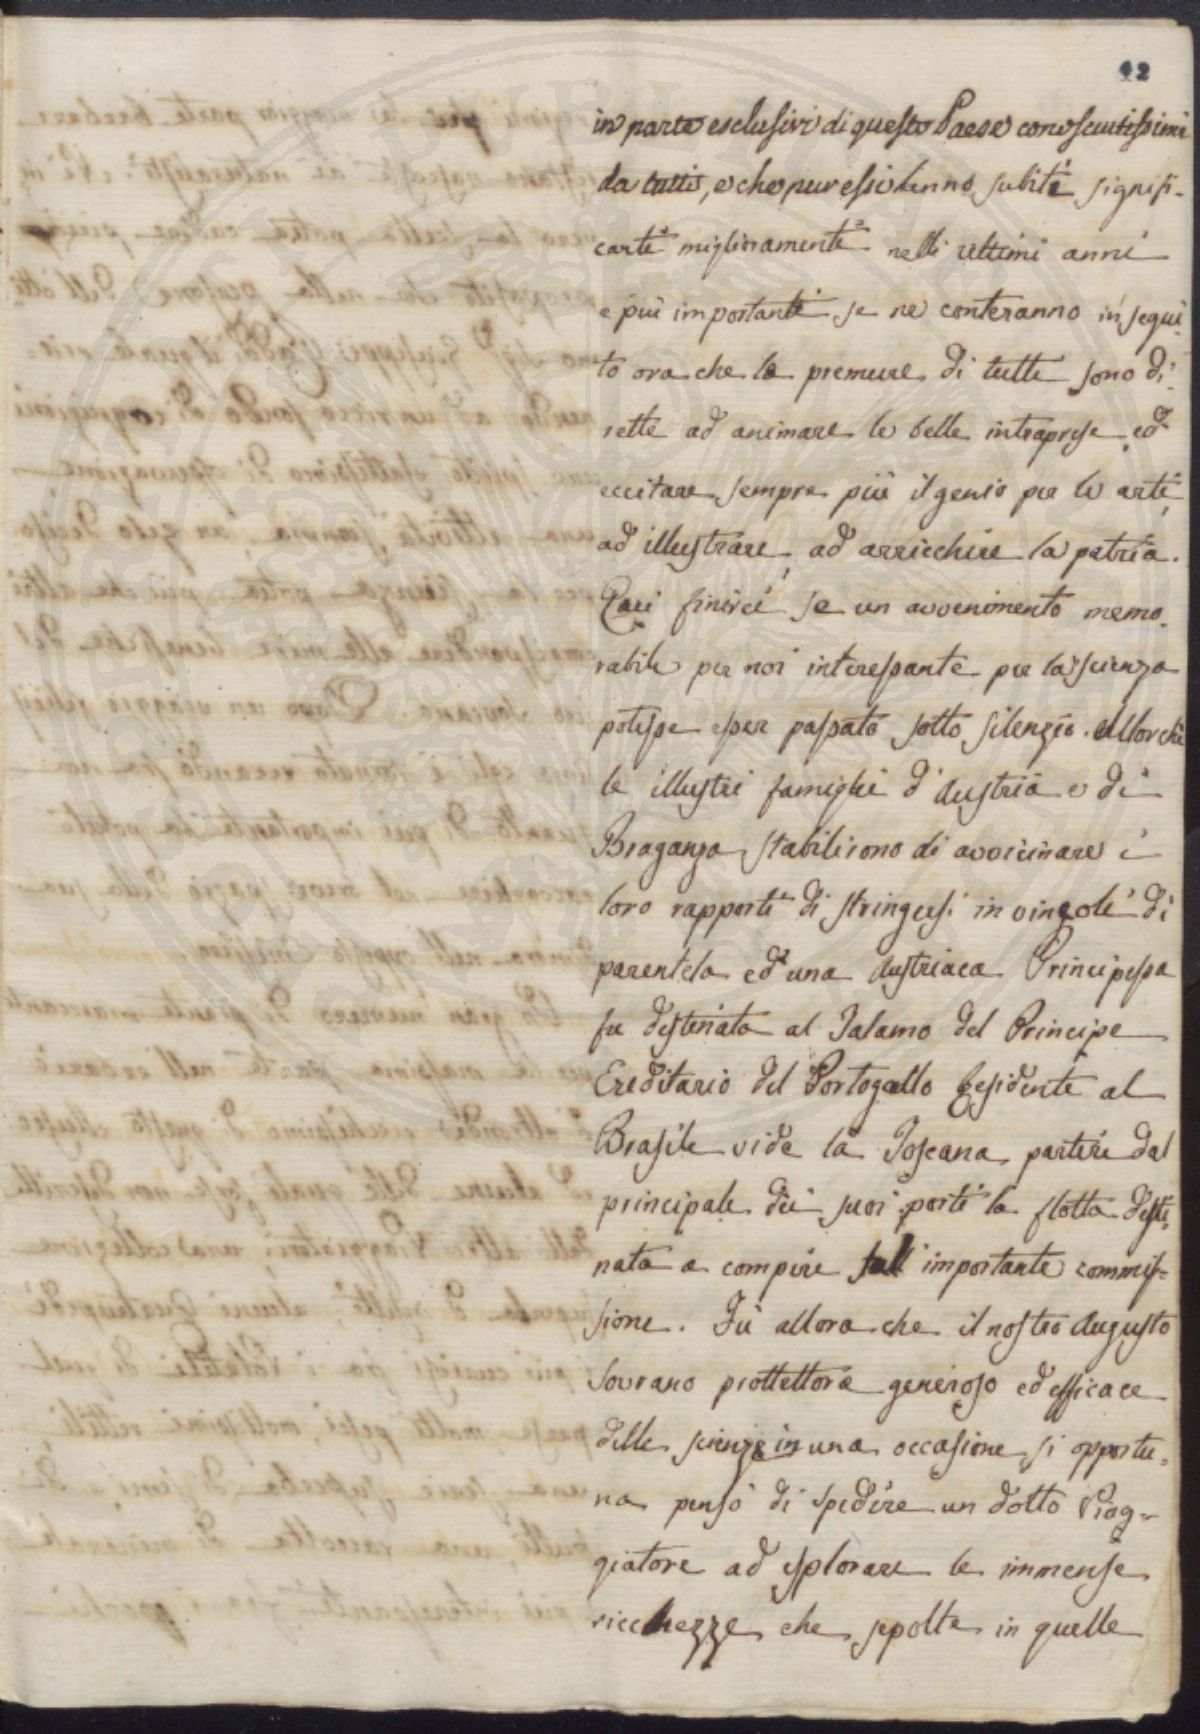 42
in parte esclusivi di questo Paese conosciutissimi
da tutti, e che pur essi hanno subiti signifi-
canti miglioramenti nelli ultimi anni
e più importanti se ne conteranno in segui-
to ora che le premure di tutti sono di-
rette ad animare le belle intraprese, ed
eccitare sempre più il genio per le arti,
ad illustrare, ad arricchire la patria.
Qui finirei se un avvenimento memo-
rabile per noi interessante per la scienza
potesse esser passato sotto silenzio. Allorchè
le illustri famiglie d'Austria e di
Braganza stabilirono di avvicinare i
loro rapporti di stringersi in vincoli di
parentela ed una Austriaca Principessa
fu destinata al Talamo del Principe
Ereditario del Portogallo Residente al
Brasile vide la Toscana partire dal
principale dei suoi porti la flotta desti-
nata a compire tall importante commis-
sione. Fù allora che il nostro Augusto
Sovrano prottettore generoso ed efficace
delle scienze in una occasione si opportu-
na pensò di spedire un dotto Viag-
giatore ad esplorare le immense
ricchezze che sepolte in quelle